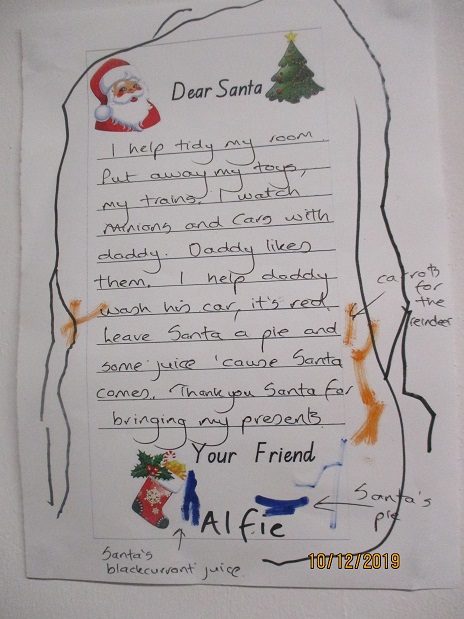 Dear Santa
I help tidy my room.
Put away my toys,
my trains. I watch
minions and Cars with
daddy. Daddy likes
them. I help daddy
wash his car, it's red
Leave Santa a pie and
some juice 'cause Santa
comes. Thank you Santa for
bringing my presents.
carrots
for
the
reindeer
Your Friend
Alfie
Santa's
pie
Santa's
blackcurrant juice.
10/12/2019